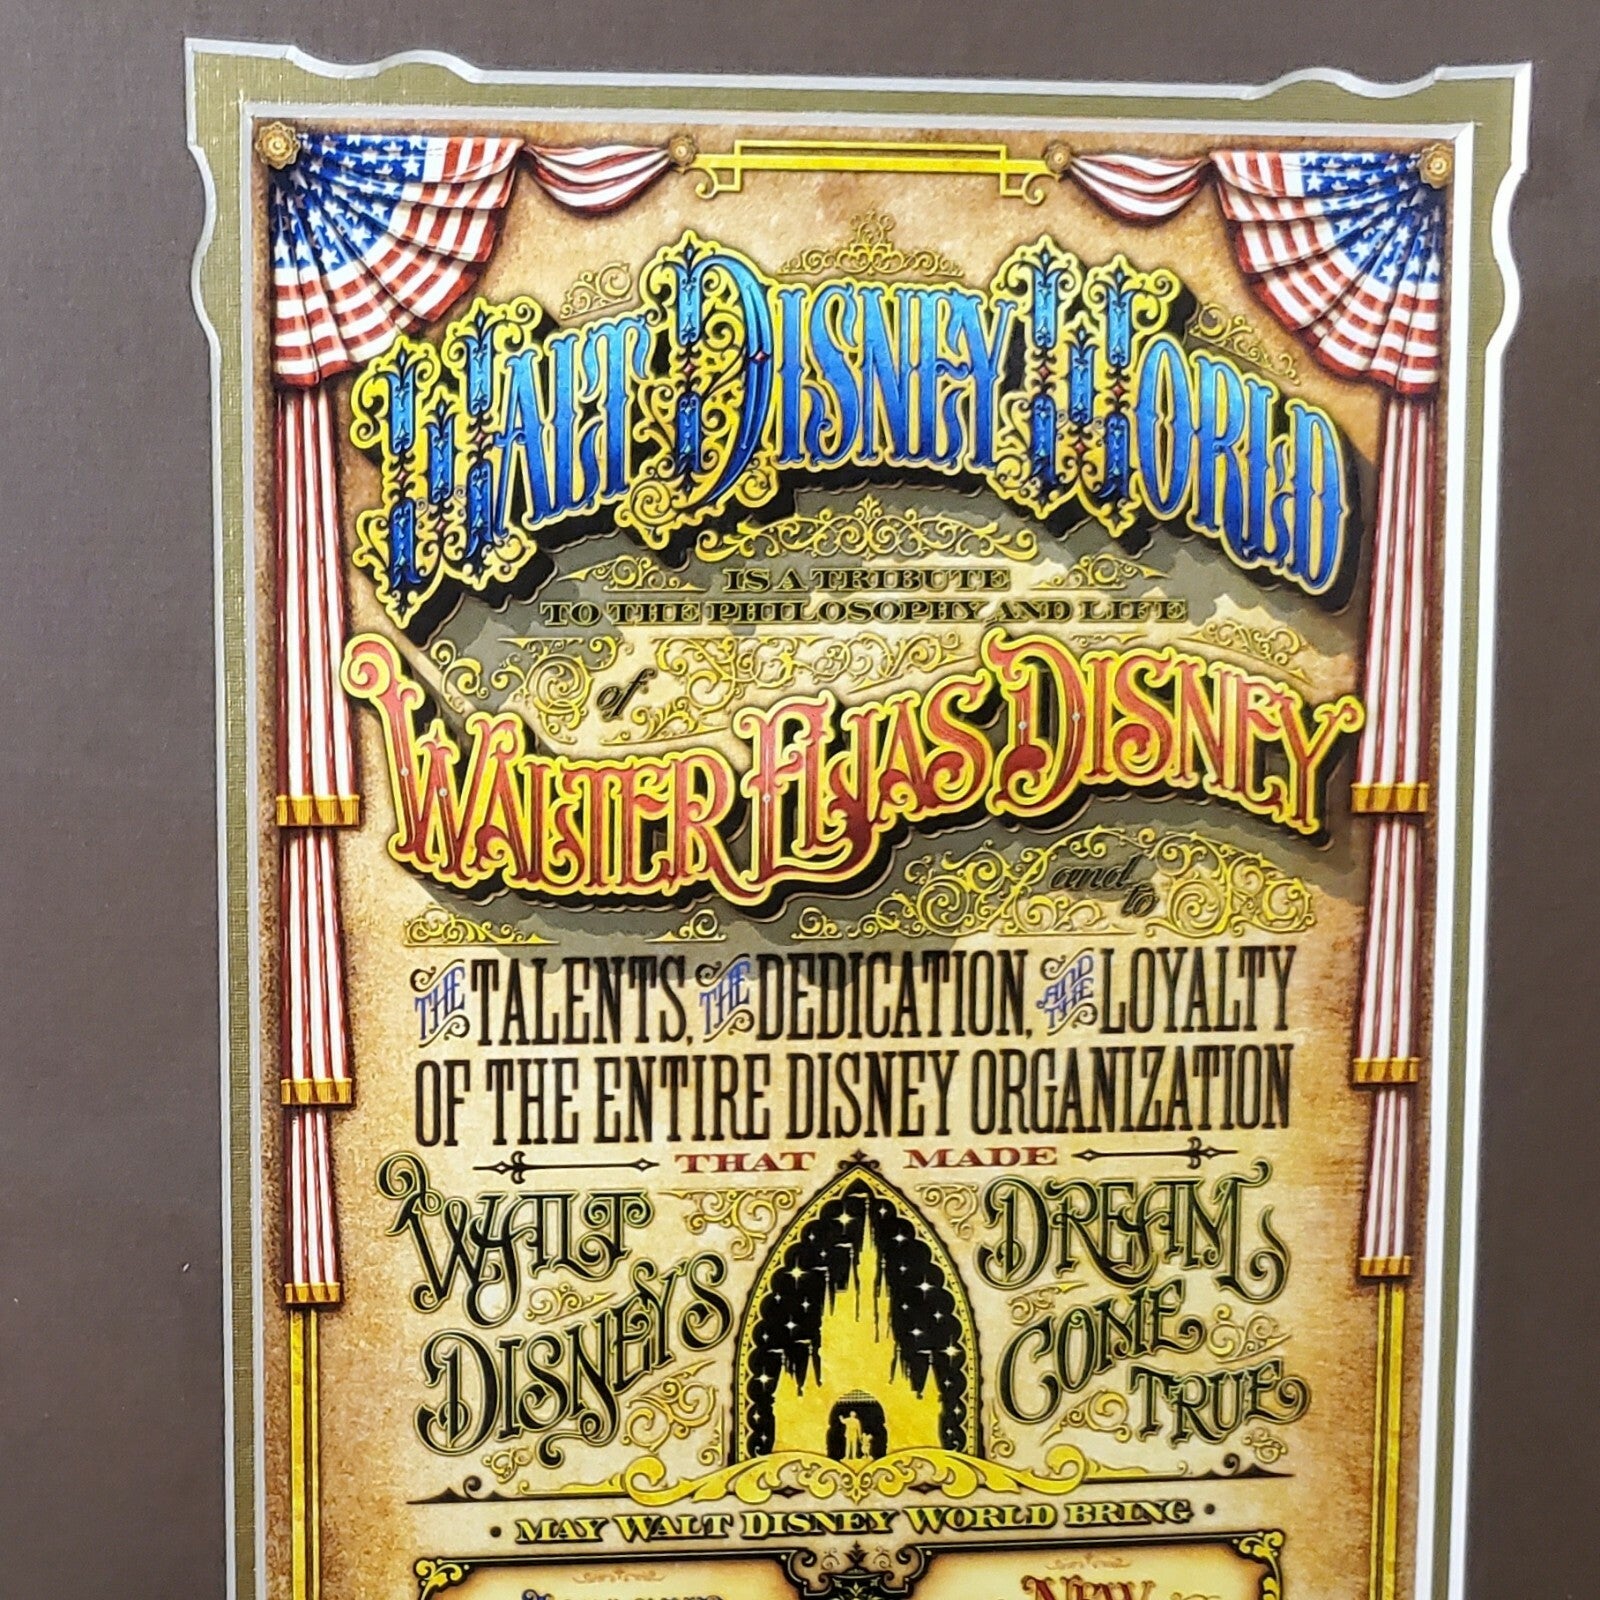 WALT DISNEY WORLD
IS A TRIBUTE
TO THE PHILOSOPHY AND LIFE
of
WALTER ELIAS DISNEY
and to
THE TALENTS, THE DEDICATION, AND THE LOYALTY
OF THE ENTIRE DISNEY ORGANIZATION
THAT MADE
WALT
DISNEY'S
DREAM
COME
TRUE
• MAY WALT DISNEY WORLD BRING •
NEW